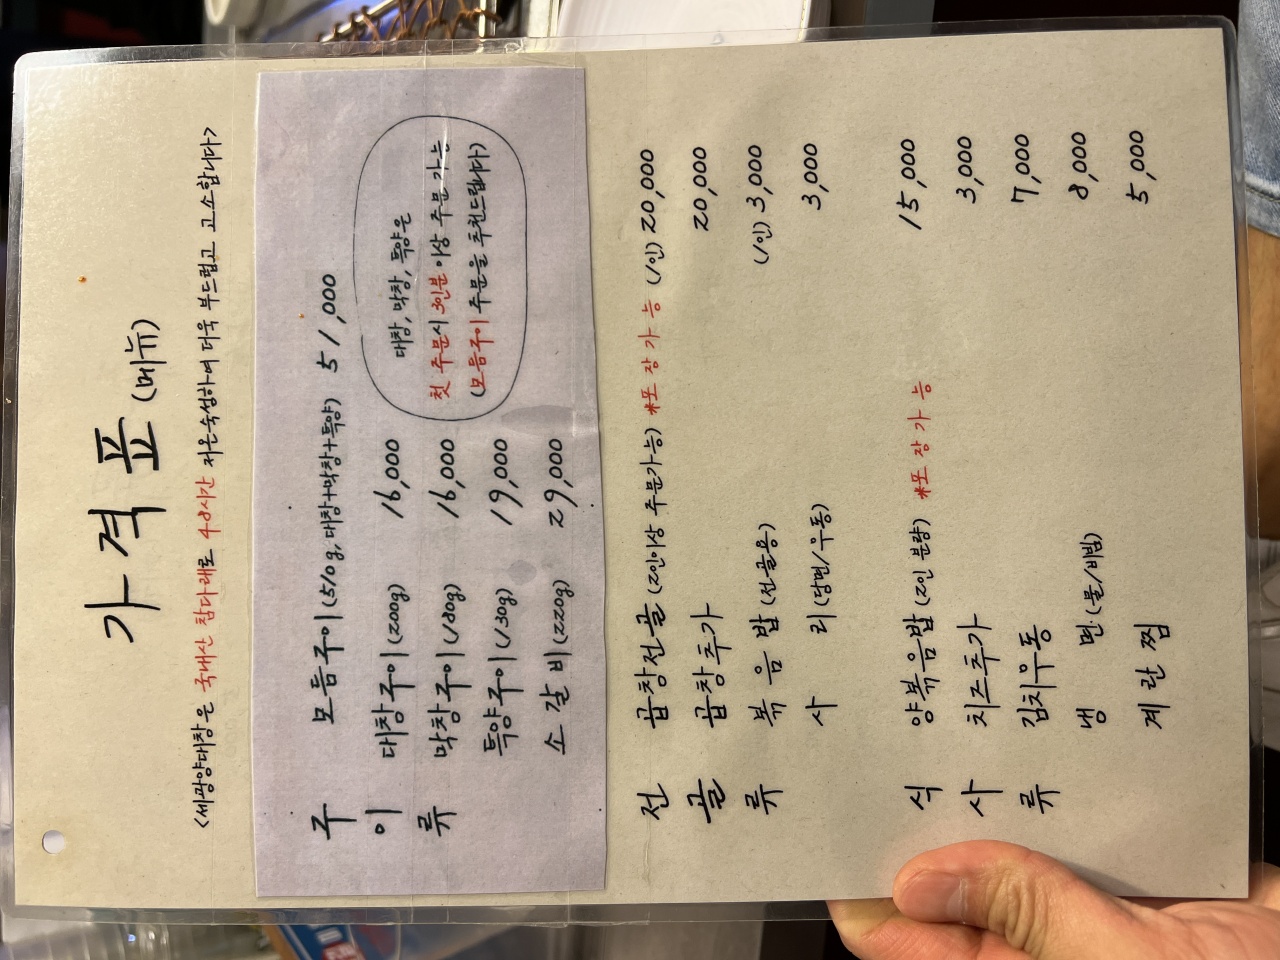 가격표 (메뉴)
<세광양대창은 국내산 참다래로 48시간 저온숙성하여 더욱 부드럽고 고소합니다>
구이류
모듬구이 (510g, 대창+막창+특양) 51,000
대창구이 (200g) 16,000
막창구이 (180g) 16,000
특양구이 (130g) 19,000
소갈비 (220g) 29,000
대창, 막창, 특양은
첫 주문시 3인분 이상 주문 가능
(모듬구이 주문을 추천드립니다)
전골류
곱창전골 (2인이상 주문가능) *포장가능 (1인) 20,000
곱창추가 20,000
볶음밥 (전골용) (1인) 3,000
사리 (당면/우동) 3,000
식사류
양볶음밥 (2인 분량) *포장가능 15,000
치즈추가 3,000
김치우동 7,000
냉면 (물/비빔) 8,000
계란찜 5,000